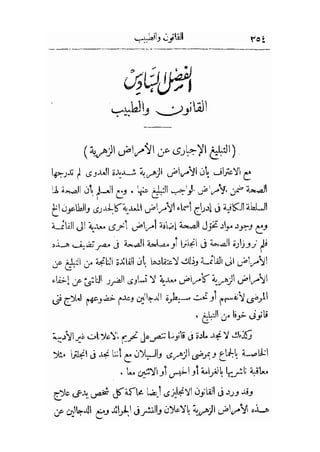 ٣٥٤ القانون والطبيب
الفصل السادس
القانون والطبيب
( التبليغ الإجبارى عن الأمراض الزهرية )
مع الاعتراف بأن الأمراض الزهرية شديدة العدوى لم تدرجها
الصحة ضمن الأمراض الواجب التبليغ عنها . ومع العلم بأن الصحة لها
السلطة الكافية فى إدراج أسماء الأمراض المعدية كالجدرى والطاعون الخ
ومع وجود مواد تخول الصحة إضافة أمراض أخرى معدية الى القائمة
فلم تر وزارة الصحة فى انجلترا أو مصلحة الصحة فى مصر تضيف هذه
الأمراض الى القائمة وذلك لاعتقادها بأن الفائدة الناتجة من التبليغ عن
الأمراض الزهرية كأمراض معدية لا تساوى الضرر الناشئ عن إخفاء
المرضى لأنفسهم أو تحت سيطرة الدجالين وعدم خضوعهم لعلاج فنى
قانونى خوفا من التبليغ .
وكذلك لا نجد مادة فى قانوننا تنص على تحريم الاعلانات غير الأدبية
الخاصة بالجماع وبمرضى الزهرى والسيلان مع أننا نجد فى انجلترا مثلا
معاقبة ناشريها بالغرامة أو الحبس أو الاثنين معا .
وقد ورد فى القانون الانجليزى أيضا محاكمة كل شخص يدعى علاج
هذه الأمراض الزهرية بالاعلان والنشر فى الجرائد ومنع الدجالين عن